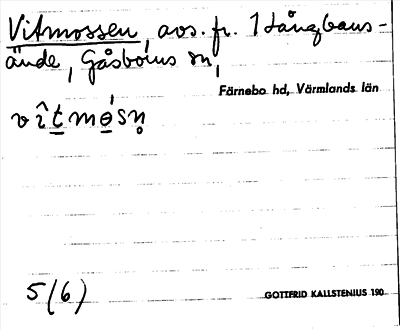 Vitmossen, avs. fr. Långbans-
ände, Gåsborns sn,
Färnebo hd, Värmlands län
5(6)
GOTTFRID KALLSTENIUS 190